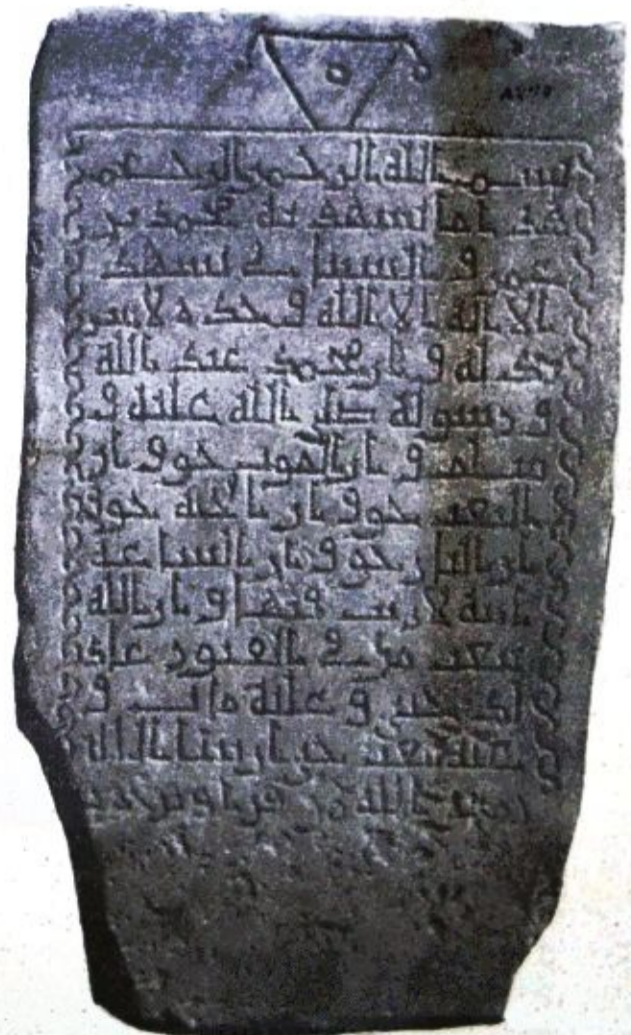 بسم الله الرحمن الرحيم
هذا ما تشهد به محمد بن
عمرو يشهد
الا اله الا الله وحده لا شر
يك له وان محمد عبد الله
ورسوله صلى الله عليه و
سلم وان الموت حق وان
البعث حق وان الجنة حق و
ان النار حق وان الساعة
اتية لا ريب فيها وان الله
يبعث من في القبور على
ذلك حيي وعليه مات و
عليه يبعث حيا ان شا الله
رحم الله من قرا